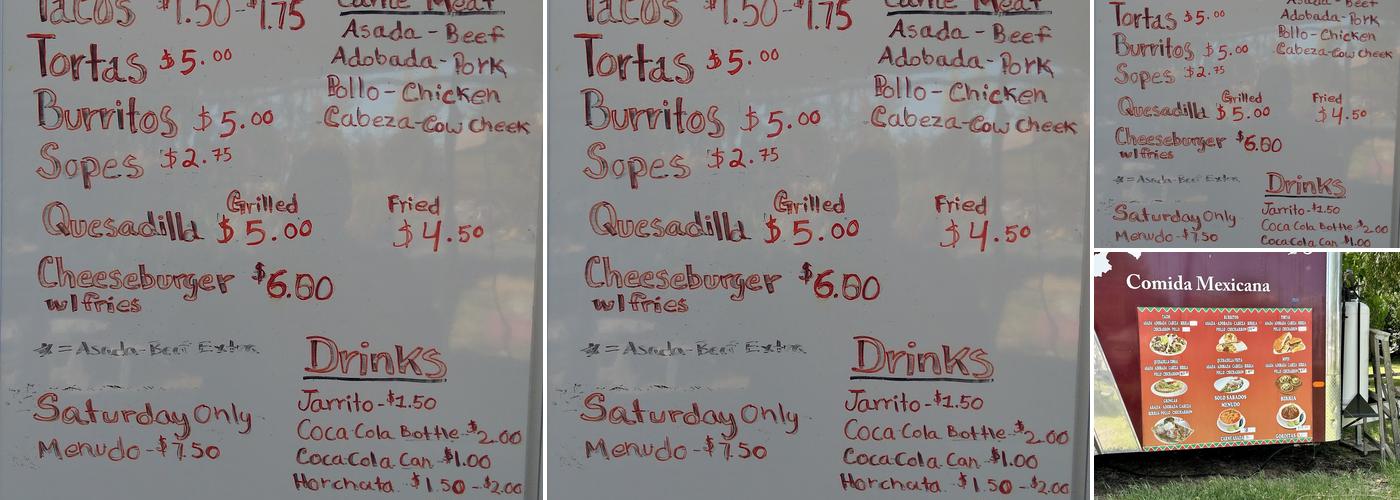 Tacos $1.50-$1.75
Carne Meat
Asada - Beef
Adobada - Pork
Pollo - Chicken
Cabeza - Cow Cheek
Tortas $5.00
Burritos $5.00
Sopes $2.75
Grilled Fried
Quesadilla $5.00 $4.50
Cheeseburger $6.00
w/fries
* = Asada-Beef Extra
Saturday Only
Menudo - $7.50
Drinks
Jarrito - $1.50
Coca Cola Bottle - $2.00
Coca Cola Can - $1.00
Horchata $1.50 - $2.00
Tacos $1.50-$1.75
Carne Meat
Asada - Beef
Adobada - Pork
Pollo - Chicken
Cabeza - Cow Cheek
Tortas $5.00
Burritos $5.00
Sopes $2.75
Grilled Fried
Quesadilla $5.00 $4.50
Cheeseburger $6.00
w/fries
* = Asada-Beef Extra
Saturday Only
Menudo - $7.50
Drinks
Jarrito - $1.50
Coca Cola Bottle - $2.00
Coca Cola Can - $1.00
Horchata $1.50 - $2.00
Asada - Beef
Adobada - Pork
Pollo - Chicken
Cabeza - Cow Cheek
Tortas $5.00
Burritos $5.00
Sopes $2.75
Grilled Fried
Quesadilla $5.00 $4.50
Cheeseburger $6.00
w/fries
* = Asada-Beef Extra
Saturday Only
Menudo - $7.50
Drinks
Jarrito - $1.50
Coca Cola Bottle $2.00
Coca Cola Can $1.00
Comida Mexicana
TACO
BURRITOS
TORTAS
SOLO SABADOS
MENUDO
BIRRIA